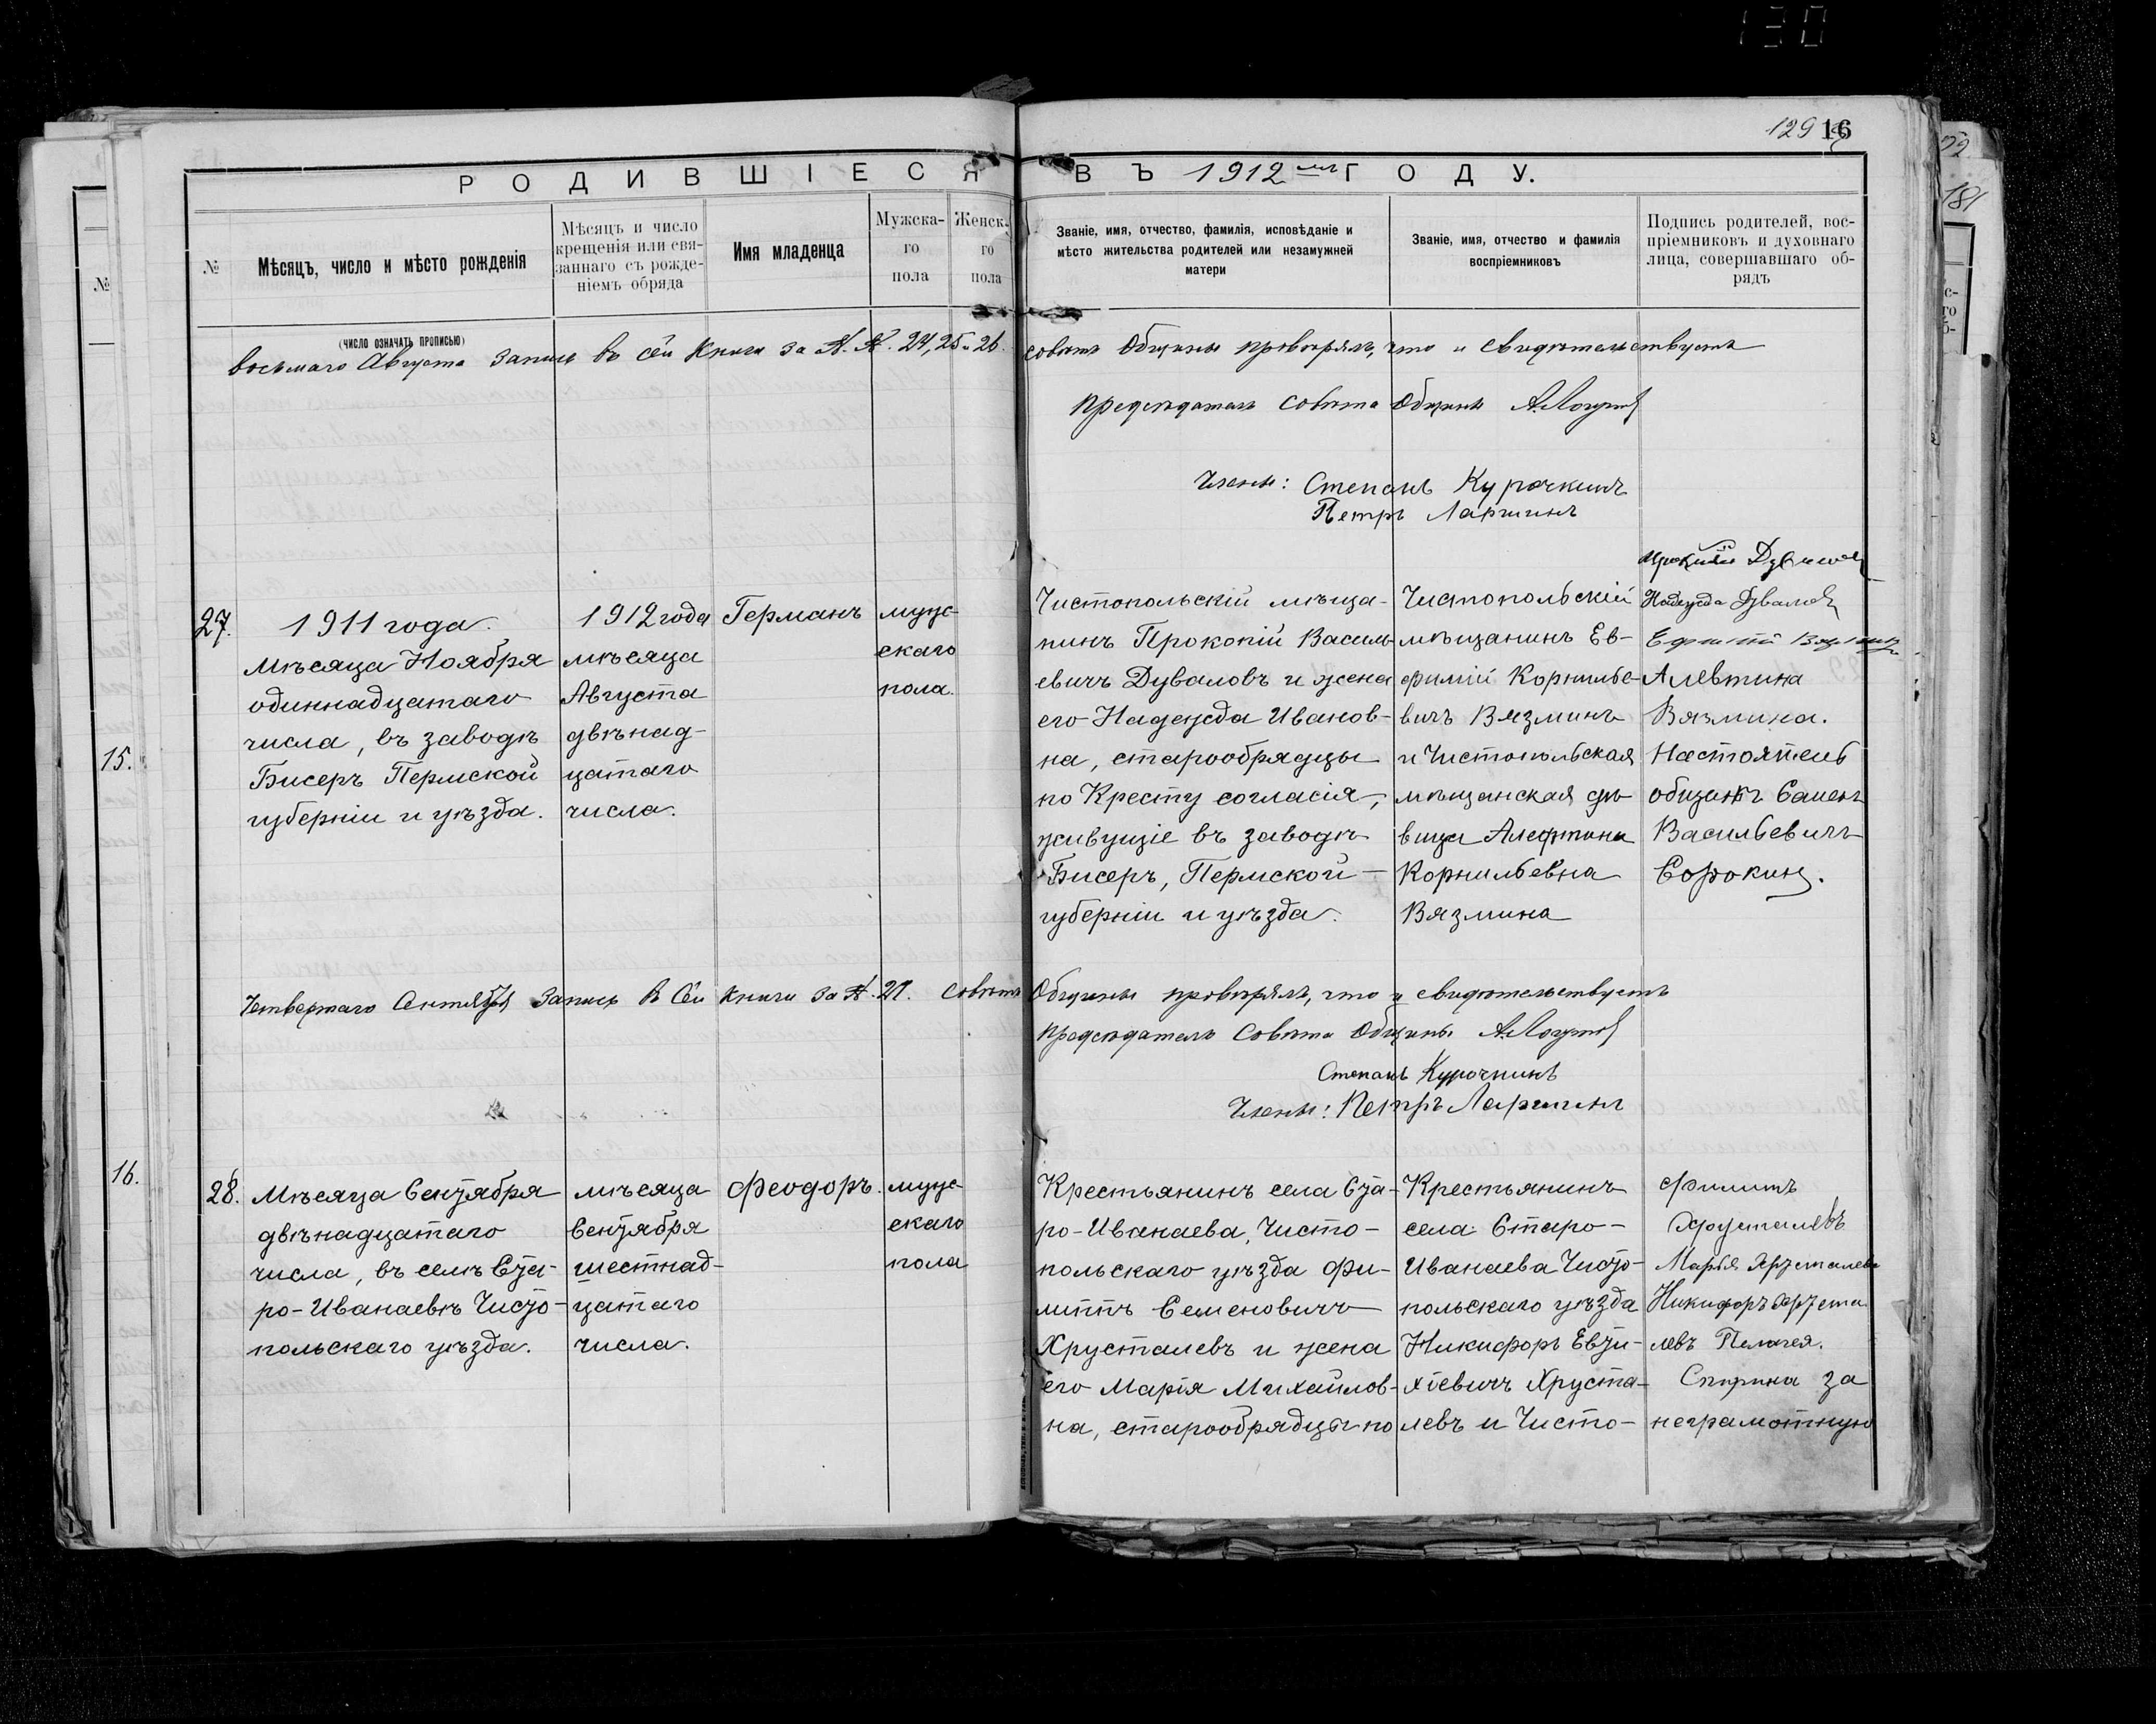 130
129 16
РОДИВШІЕСЯ ВЪ 1912 мъ ГОДУ.
№
Мѣсяцъ, число и мѣсто рожденія
(ЧИСЛО ОЗНАЧАТЬ ПРОПИСЬЮ)
Мѣсяцъ и число
крещенія или свя-
заннаго съ рожде-
ніемъ обряда
Имя младенца
Мужска-
го
пола
Женск
го
пола
Званіе, имя, отчество, фамилія, исповѣданіе и
мѣсто жительства родителей или незамужней
матери
Званіе, имя, отчество и фамилія
воспріемниковъ
Подпись родителей, вос-
пріемниковъ и духовнаго
лица, совершавшаго об-
рядъ
восьмаго Августа запись въ сей книги за №.№. 24, 25 и 26. совѣтъ Общины провѣрялъ, что и свидѣтельствуетъ
предсѣдатель совѣта Общины
Члены: Степанъ Курочкинъ
Петръ Ларшинъ
27.
1911 года.
Мѣсяца Ноября
одиннадцатаго
числа, въ заводѣ
Бисеръ Пермской
губерніи и уѣзда.
1912 года
мѣсяца
Августа
двѣнад-
цатаго
числа.
Германъ
муже-
скаго
пола.
Чистопольскій мѣща-
нинъ Прокопій Василь-
евичъ Дуваловъ и жена
его Надежда Иванов-
на, старообрядцы
по Кресту согласія,
живущіе въ заводѣ
Бисеръ, Пермской
губерніи и уѣзда.
Чистопольскій
мѣщанинъ Ев-
фимій Корнилье-
вичъ Вязминъ
и Чистопольская
мѣщанская дѣ-
вица Алефтина
Корнильевна
Вязмина
Надежда Дувалов
Алевтина
Вязмина.
Настоятель
Васильевичъ
Сорокинъ.
Четвертаго Сентября запись въ сей книги за №. 27. совѣтъ Общины провѣрялъ, что и свидѣтельствуетъ
предсѣдатель совѣта Общины
Степанъ Курочкинъ
Члены: Петръ Ларшинъ
28.
Мѣсяца Сентября
двѣнадцатаго
числа, въ селѣ Ста-
ро-Иванаевѣ Чисто-
польскаго уѣзда.
мѣсяца
Сентября
шестнад-
цатаго
числа.
Феодоръ.
муже-
скаго
пола
Крестьянинъ села Ста-
ро-Иванаева, Чисто-
польскаго уѣзда Фи-
липпъ Семеновичъ
Хрусталевъ и жена
его Марія Михайлов-
на, старообрядцы по
Крестьянинъ
села Старо-
Иванаева Чисто-
польскаго уѣзда
Никифоръ Евти-
хіевичъ Хруста-
левъ и Чисто-
Филипъ
Хрусталевъ
Марья Хрусталева
Никифоръ Хруста
левъ Пелагея.
Спирина за
неграмотную
15.
16.
№
181